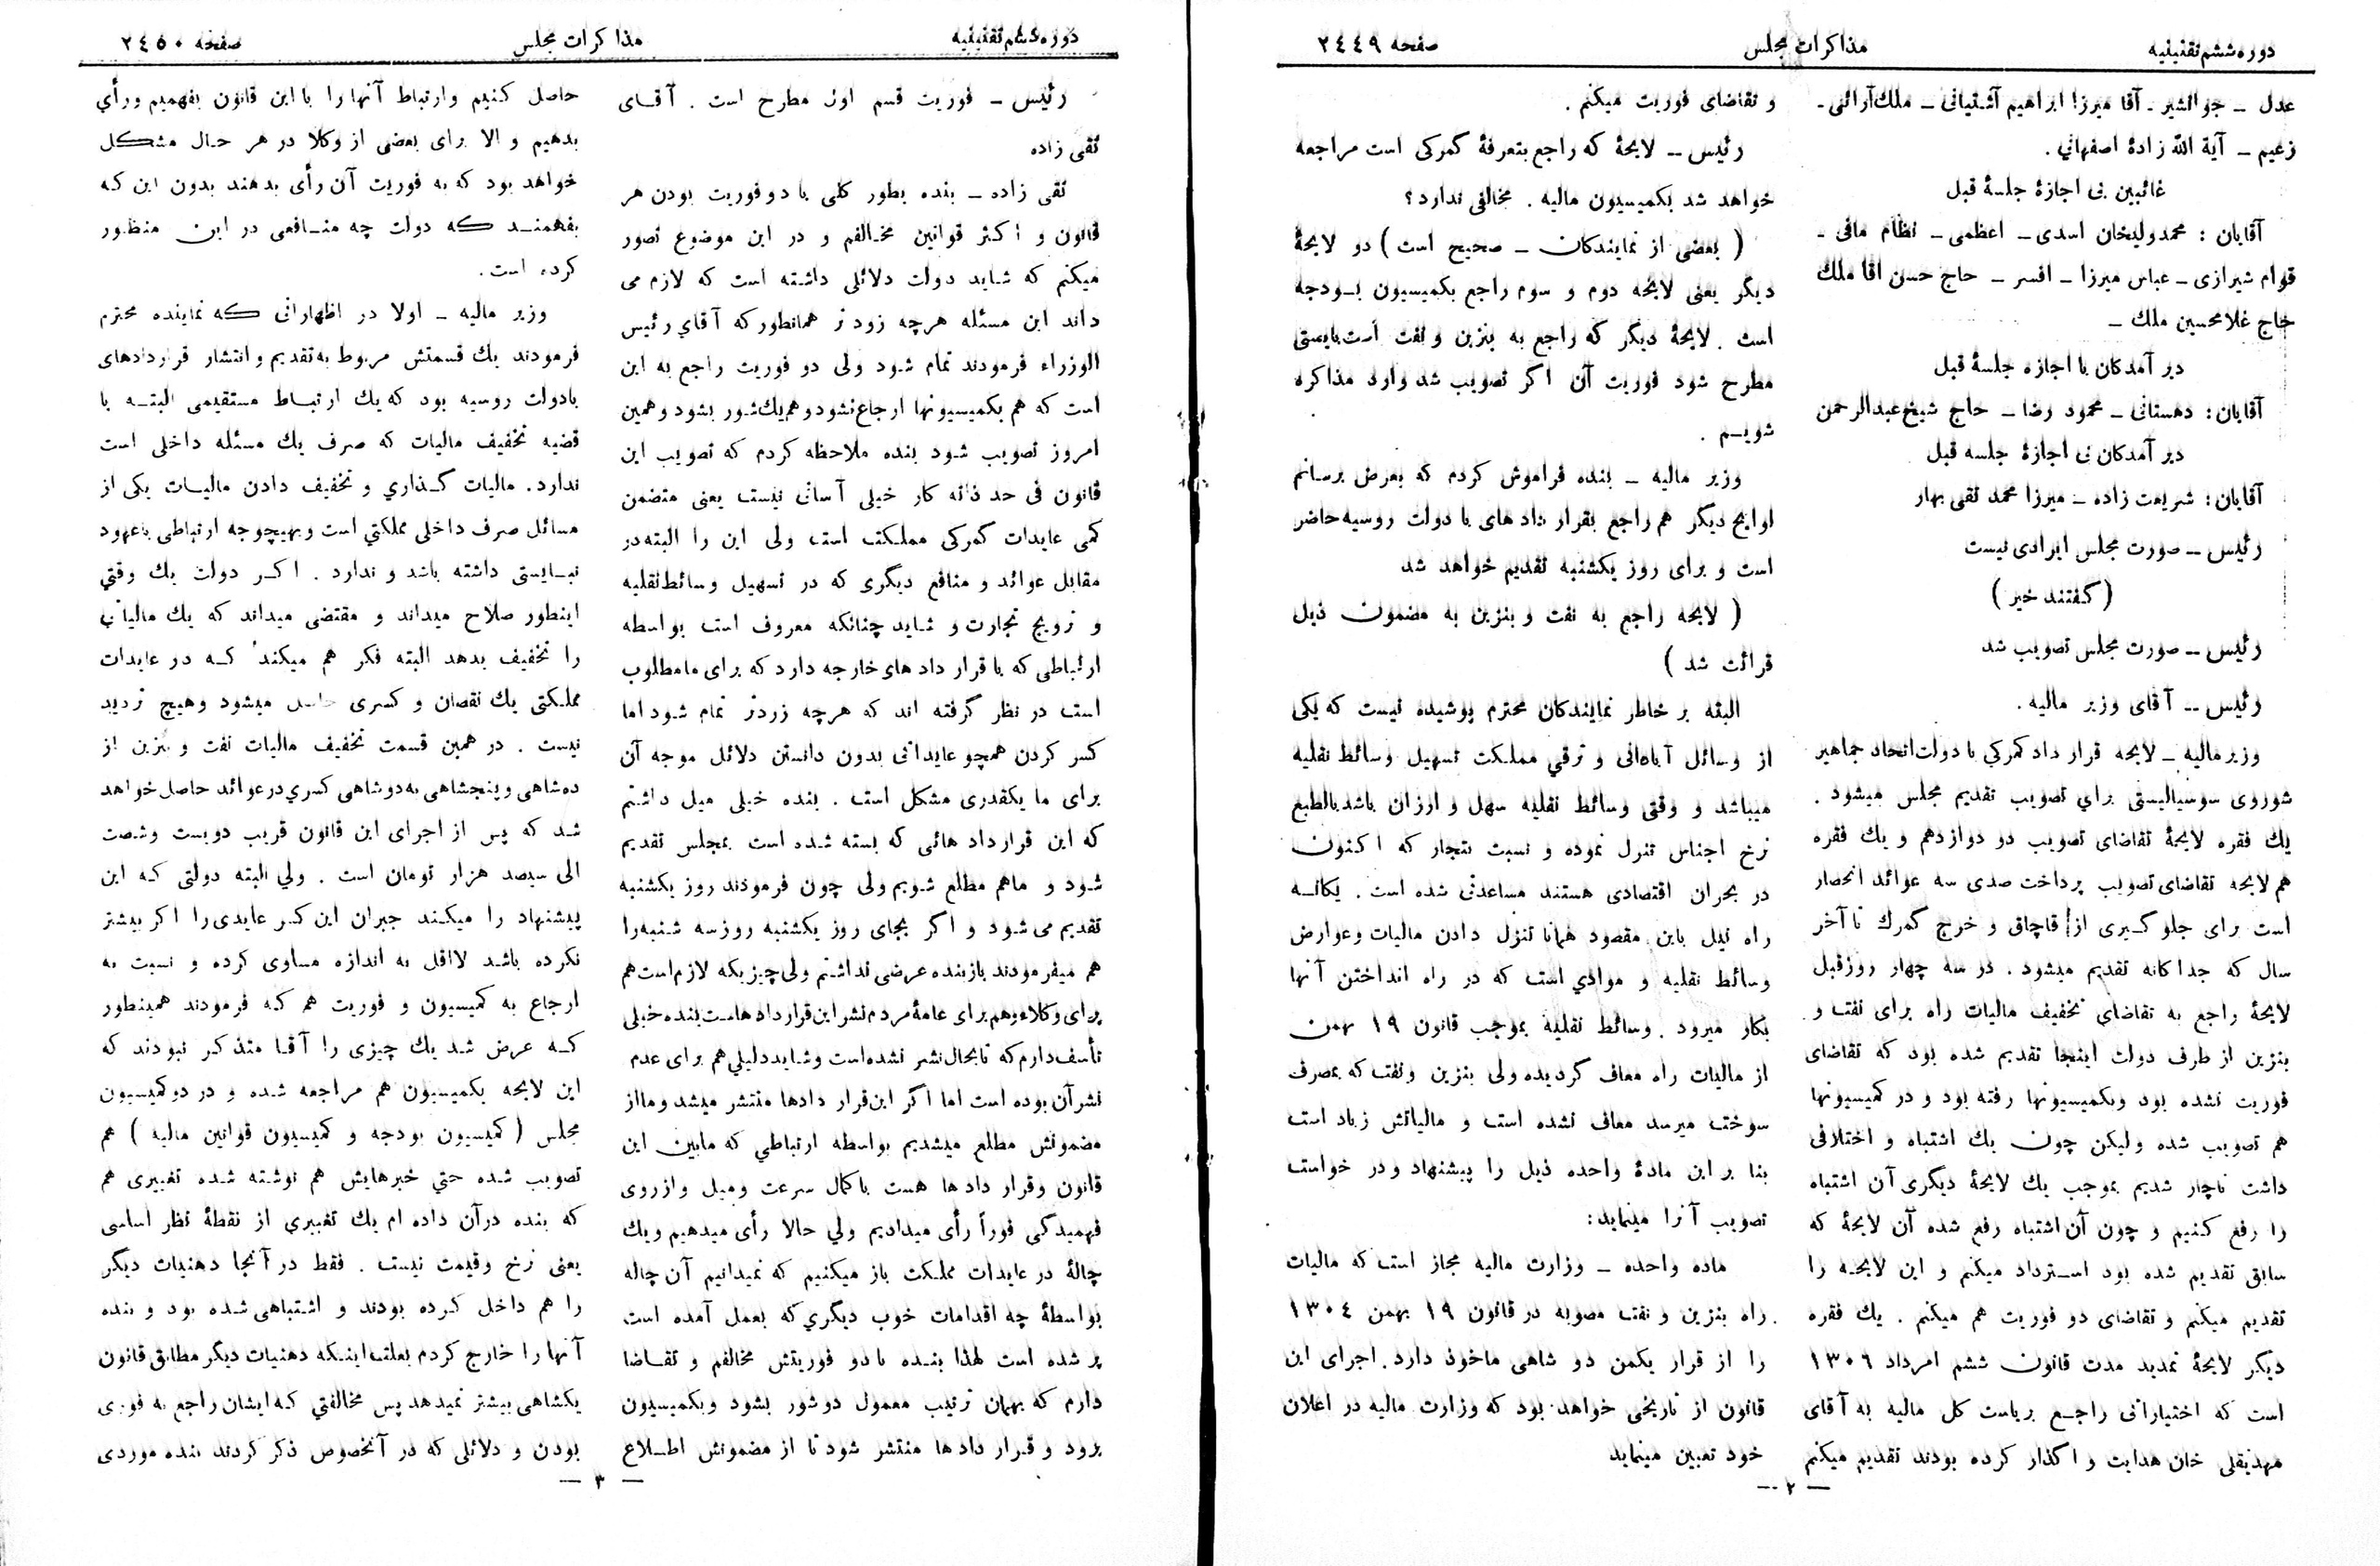 دوره ششم تقنینیه
مذاکرات مجلس
صفحه ۲٤٤۹
عدل ــ جوانشیر ـ آقا میرزا ابراهیم آشتیانی ــ ملك‌آرائی ـ
زعیم ــ آیة الله زادهٔ اصفهانی .
غائبین بی اجازهٔ جلسهٔ قبل
آقایان : محمدولیخان اسدی ــ اعظمی ــ نظام مافی ـ
قوام شیرازی ــ عباس میرزا ــ افسر ــ حاج حسن اقا ملك
حاج غلامحسین ملك ــ
دیر آمدکان با اجازه جلسهٔ قبل
آقایان : دهستانی ــ محمود رضا ــ حاج شیخ عبدالرحمن
دیر آمدکان بی اجازهٔ جلسه قبل
آقایان : شریعت زاده ــ میرزا محمد تقی بهار
رئیس ــ صورت مجلس ایرادی نیست
( کفتند خیر )
رئیس ــ صورت مجلس تصویب شد
رئیس ــ آقای وزیر مالیه .
وزیر مالیه ــ لایحه قرار داد کمرکی با دولت اتحاد جماهیر
شوروی سوسیالیستی برای تصویب تقدیم مجلس میشود .
یك فقره لایحهٔ تقاضای تصویب دو دوازدهم و یك فقره
هم لایحه تقاضای تصویب پرداخت صدی سه عوائد انحصار
است برای جلو کـیری از قاچاق و خرج کمرك تا آخر
سال که جداکانه تقدیم میشود . در سه چهار روز قبل
لایحهٔ راجع به تقاضای تخفیف مالیات راه برای نفت و
بنزین از طرف دولت اینجا تقدیم شده بود که تقاضای
فوریت نشده بود وبکمیسیونها رفته بود و در کمیسیونها
هم تصویب شده ولیکن چون یك اشتباه و اختلافی
داشت ناچار شدیم بموجب یك لایحهٔ دیگری آن اشتباه
را رفع کنیم و چون آن اشتباه رفع شده آن لایحهٔ که
سابق تقدیم شده بود استرداد میکنم و این لایحـه را
تقدیم میکنم و تقاضای دو فوریت هم میکنم . یك فقره
دیگر لایحهٔ تمدید مدت قانون ششم امرداد ۱۳۰٦
است که اختیاراتی راجـع بریاست کل مالیه به آقای
مهدیقلی خان هدایت واکذار کرده بودند تقدیم میکنم
ــ ۲ ــ
و تقاضای فوریت میکنم .
رئیس ــ لایحهٔ که راجع بتعرفهٔ کمرکی است مراجعه
خواهد شد بکمیسیون مالیه . مخالفی ندارد ؟
( بعضی از نمایندکان ــ صحیح است ) دو لایحهٔ
دیگر یعنی لایحه دوم و سوم راجع بکمیسیون بـودجه
است . لایحهٔ دیگر که راجع به بنزین و نفت است بایستی
مطرح شود فوریت آن اکر تصویب شد وارد مذاکره
شویـم .
وزیر مالیه ــ بنده فراموش کردم که بعرض برسانم
لوایح دیگر هم راجع بقرار داد های با دولت روسیه حاضر
است و برای روز یکشنبه تقدیم خواهد شد
( لایحه راجع به نفت و بنزین به مضمون ذیل
قرائت شد )
البته بر خاطر نمایندکان محترم پوشیده نیست که یکی
از وسائل آبادانی و ترقی مملکت تسهیل وسائط نقلیه
میباشد و وقتی وسائط نقلیه سهل و ارزان باشد بالطبع
نرخ اجناس تنزل نموده و نسبت بتجار که اکنون
در بحران اقتصادی هستند مساعدتی شده است . یکانـه
راه نیل باین مقصود همانا تنزل دادن مالیات وعوارض
وسائط نقلیه و موادي است که در راه انداختن آنها
بکار میرود . وسائط نقلیهٔ بموجب قانون ۱۹ بهمن
از مالیات راه معاف کردیده ولی بنزین ونفت که بمصرف
سوخت میرسد معاف نشده است و مالیاتش زیاد است
بنا بر این مادهٔ واحده ذیل را پیشنهاد و در خواست
تصویب آنرا مینماید :
ماده واحده ــ وزارت مالیه مجاز است که مالیات
راه بنزین و نفت مصوبه در قانون ۱۹ بهمن ۱۳۰٤
را از قرار یکمن دو شاهی ماخوذ دارد . اجرای این
قانون از تاریخی خواهد بود که وزارت مالیه در اعلان
خود تعیین مینماید
دوره ششم تقنینیه
مذاکرات مجلس
صفحه ۲٤٥۰
رئیس ــ فوریت قسم اول مطرح است . آقـای
تقی زاده
تقی زاده ــ بنده بطور کلی با دو فوریت بودن هر
قانون و اکثر قوانین مخـالفم و در این موضوع تصور
میکنم که شاید دولت دلائلی داشته است که لازم می
داند این مسئله هرچه زودتر همانطور که آقاي رئیس
الوزراء فرمودند تمام شود ولی دو فوریت راجع به این
است که هم بکمیسیونها ارجاع نشود و هم یك شور بشود وهمین
امروز تصویب شود بنده ملاحظه کردم که تصویب این
قانون فی حد ذاته کار خیلی آسانی نیست یعنی متضمن
کمی عایدات کمرکی مملـکت است ولی این را البته در
مقابل عوائد و منافع دیگری که در تسهیل وسائط نقلیه
و ترویج تجارت و شاید چنانکه معروف است بواسطه
ارتباطی که با قرار داد های خارجه دارد که برای ما مطلوب
است در نظر گرفته اند که هرچه زردتر تمام شود اما
کسر کردن همچو عایداتی بدون دانستن دلائل موجه آن
برای ما یکقدری مشکل است . بنده خیلی میل داشتم
که این قرارداد هائی که بسته شده است بمجلس تقدیم
شود و ماهم مطلع شویم ولی چون فرمودند روز یکشنبه
تقدیم می شود و اکر بجای روز یکشنبه روز سه شنبه را
هم میفرمودند باز بنده عرضی نداشتم ولی چیزیکه لازم است هم
برای وکلاء و هم برای عامهٔ مردم نشر این قرار داد هاست بنده خیلی
تأسف دارم که تابحال نشر نشده است و شاید دلیلي هم برای عدم
نشر آن بوده است اما اگر این قرار دادها منتشر میشد و ما از
مضمونش مطلع میشدیم بواسطه ارتباطي که مابین این
قانون وقرار داد ها هست باکمال سرعت ومیل و از روی
فهمیدگی فوراً رأی میدادیم ولي حالا رأی میدهیم و یك
چالهٔ در عایدات مملکت باز میکنیم که نمیدانیم آن چاله
بواسطهٔ چه اقدامات خوب دیگري که بعمل آمده است
پر شده است لهذا بنـده با دو فوریتش مخالفم و تقـاضا
دارم که بهمان ترتیب معمول دو شور بشود وبکمیسیون
برود و قـرار داد ها منتشر شود تا از مضمونش اطـلاع
ــ ۳ ــ
حاصل کنیم وارتباط آنها را با این قانون بفهمیم ورأي
بدهیم و الا برای بعضی از وکلا در هر حـال مشکل
خواهد بود که به فوریت آن رأی بدهند بدون این کـه
بفهمنـد که دولت چه منـافعی در این منظـور
کرده است .
وزیر مالیه ــ اولا در اظهاراتی که نماینده محترم
فرمودند یك قسمتش مربوط به تقدیم و انتشار قراردادهای
بادولت روسیه بود که یك ارتبـاط مستقیمی البتـه با
قضیه تخفیف مالیات که صرف یك مسئله داخلی است
ندارد . مالیات گـذاري و تخفیف دادن مالیـات یکی از
مسائل صرف داخلی مملکتي است و بهیچوجه ارتباطی باعهود
نبـایستی داشته باشد و ندارد . اکـر دولت یك وقتي
اینطور صلاح میداند و مقتضی میداند که یك مالیاتی
را تخفیف بدهد البته فکر هم میکند کـه در عایدات
مملـکتی یك نقصان و کسری حاصل میشود وهیچ تردید
نیست . در همین قسمت تخفیف مالیات نفت و بنزین از
ده شاهی و پنجشاهی به دو شاهی کسري در عوائد حاصل خواهد
شد که پس از اجرای این قانون قریب دویست وشصت
الی سیصد هزار تومان است . ولي البته دولتی کـه این
پیشنهاد را میکـند جبران این کسر عایدی را اکر بیشتر
نکرده باشد لااقل به اندازه مساوی کرده و نسبت به
ارجاع به کمیسیون و فوریت هم کـه فرمودند همینطور
کـه عرض شد یك چیزی را آقـا متذکر نبودند که
این لایحه بکمیسیون هم مراجعه شده و در دوکمیسیون
مجلس ( کمیسیون بودجه و کمیسیون قوانین مالیه ) هم
تصویب شده حتي خبرهایش هم نوشته شـده تغییری هم
که بنده در آن داده ام یك تغییري از نقطهٔ نظر اساسی
یعنی نرخ وقیمت نیست . فقط در آنجا دهنیات دیگر
را هم داخل کرده بودند و اشتباهی شده بود و بنده
آنها را خارج کردم بعلت اینکه دهنیات دیگر مطابق قانون
یکشاهی بیشتر نمیدهد پس مخالفتي کـه ایشان راجع به فوری
بودن و دلائلی که در آنخصوص ذکر کردند بنده موردی